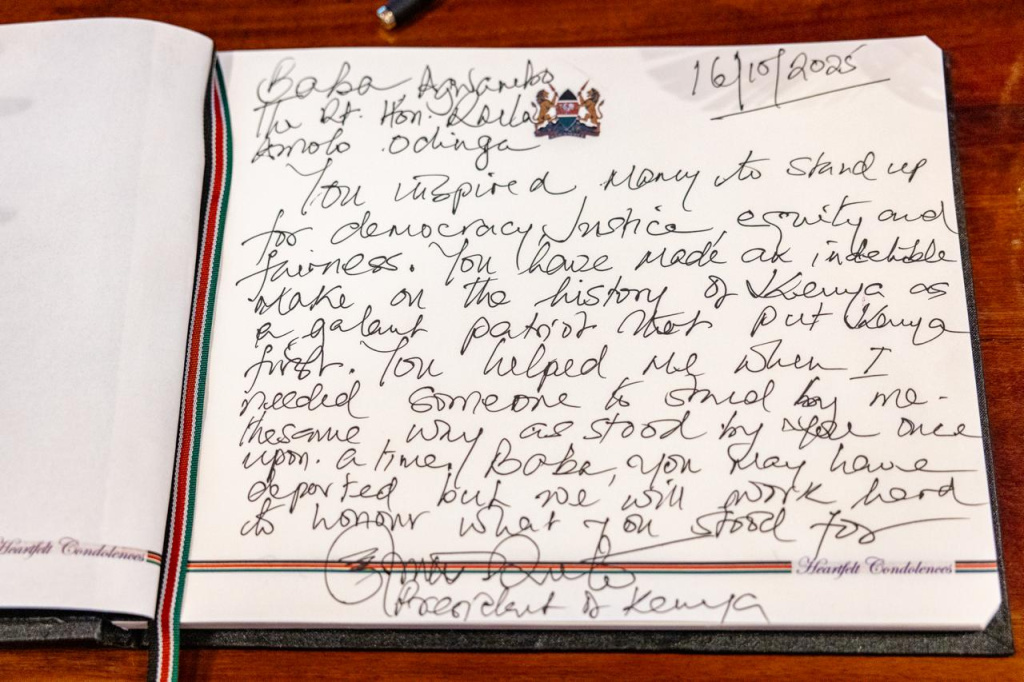 Baba Agwambo
The Rt. Hon. Raila
Amolo Odinga
16/10/2025
You inspired many to stand up
for democracy Justice, equity and
fairness. You have made an indelible
Make on the history of Kenya as
a galant patriot that put Kenya
first. You helped me when I
needed someone to stand by me.
thesame way as stood by you once
upon a time. Baba, you may have
departed but we will work hard
to honour what you stood for
Ruto
President of Kenya
Heartfelt Condolences
Heartfelt Condolences